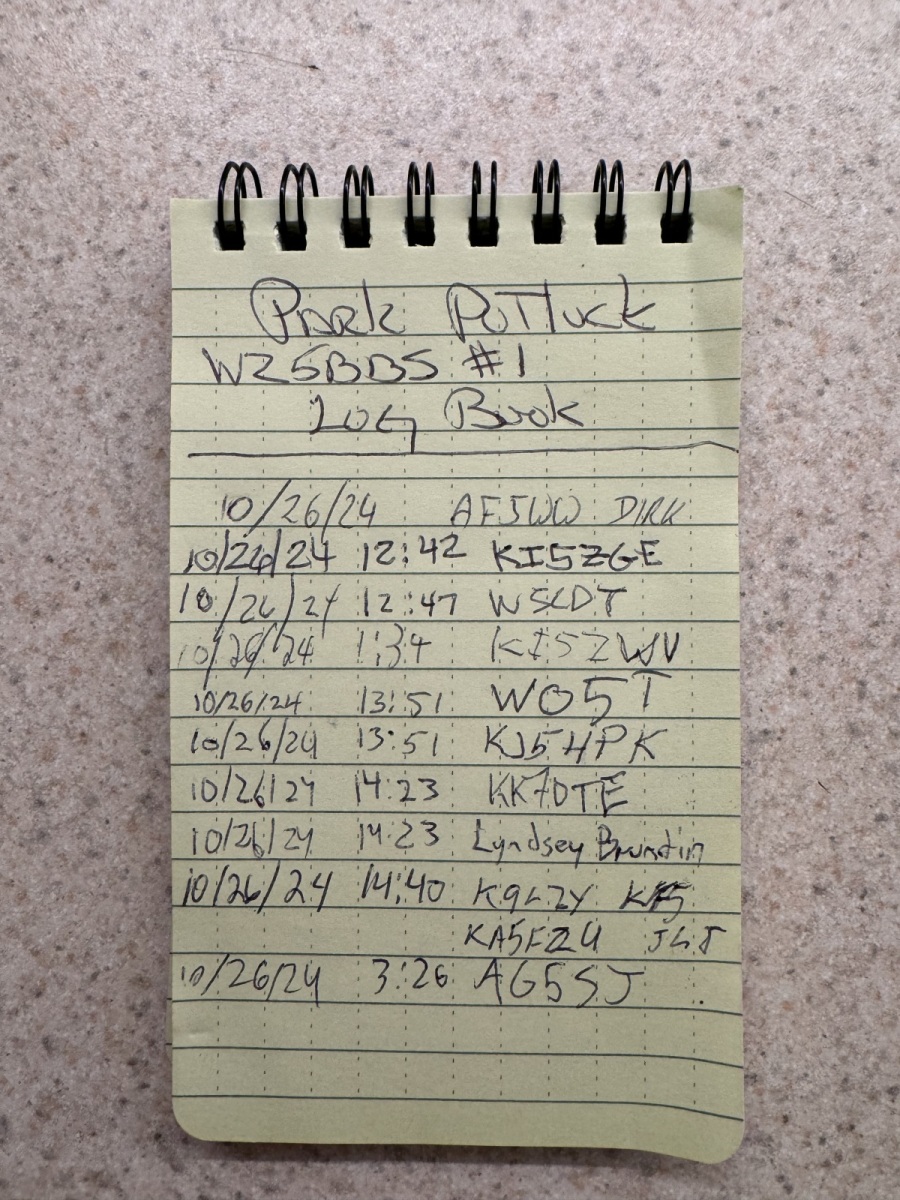 Park Potluck
WZ5BBS #1
Log Book
10/26/24 AF5WW DIRK
10/26/24 12:42 KI5ZGE
10/26/24 12:47 W5LDT
10/26/24 1:34 KI5ZWV
10/26/24 13:51 WO5T
10/26/24 13:51 KJ5HPK
10/26/24 14:23 KK7DTE
10/26/24 14:23 Lyndsey
10/26/24 14:40 K9LZY
KA5FZU
10/26/24 3:26 AG5SJ